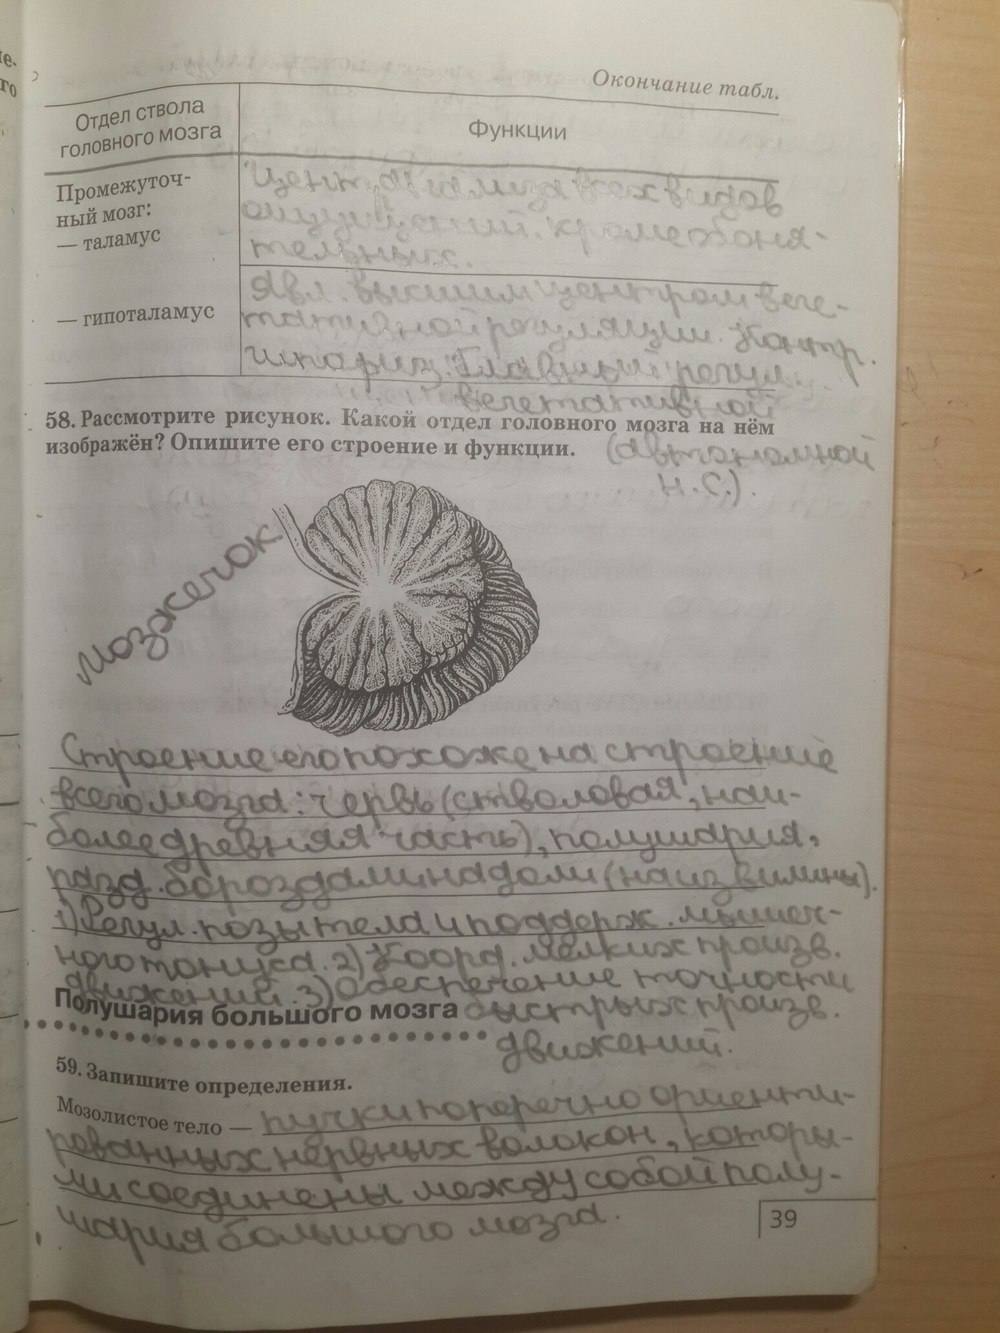 Окончание табл.
Отдел ствола
головного мозга
Функции
Промежуточ-
ный мозг:
— таламус
Центр анализа всех видов
ощущений, кроме обоня-
тельных.
— гипоталамус
Явл. высшим центром веге-
тативной регуляции. Контр.
гипофиз. Главный регул.
вегетативной
(автономной
н.с.).
58. Рассмотрите рисунок. Какой отдел головного мозга на нём
изображён? Опишите его строение и функции.
Мозжечок
Строение его похоже на строение
всего мозга: червь (стволовая, наи-
более древняя часть), полушария,
разд. бороздами на доли (на извилины).
1) Регул. позы тела и поддерж. мышеч-
ного тонуса. 2) Коорд. мелких произв.
движений. 3) Обеспечение точности
быстрых произв.
движений.
Полушария большого мозга
59. Запишите определения.
Мозолистое тело — пучки поперечно ориенти-
рованных нервных волокон, которы-
ми соединены между собой полу-
шария большого мозга.
39